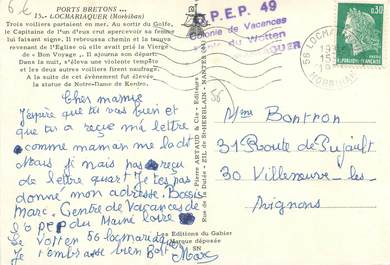 PORTS BRETONS ...
15. - LOCMARIAQUER (Morbihan)
Trois voiliers partaient en mer. Au sortir du Golfe,
le Capitaine de l'un d'eux crut apercevoir sa femme
lui faisant signe. Il rebroussa chemin et la trouva
revenant de l'Eglise où elle avait prié la Vierge
de « Bon Voyage ». Il ajourna son départ.
Dans la nuit, s'éleva une violente tempête
et les deux autres voiliers firent naufrage.
A la suite de cet événement fut élevée,
la statue de Notre-Dame de Kerdro.
A.D.P.E.P. 49
Colonie de Vacances
56 LOCMARIAQUER
MORBIHAN
0,30
REPUBLIQUE FRANCAISE
56
Cher mamie
J'éspère que tu vas bien et
que tu a reçue ma lettre
comme maman me la dit
Mais ji mais pas reçu
de lettre quart Je tes pas
donné mon adresse. Bossis
Marc. Centre de Vacances de
PEP du Maine Loire
Le Votten 56 locmariaquer
Je t'embrasse bien Bort Marc
Pierre ARTAUD & Cie - Editeurs
Rue de la Dutée - ZIL de St-HERBLAIN - NANTES
Mme Bontron
31 Route de Pujault
30 Villeneuve-les-
Avignons
Les Editions du Gabier
Marque déposée
SN